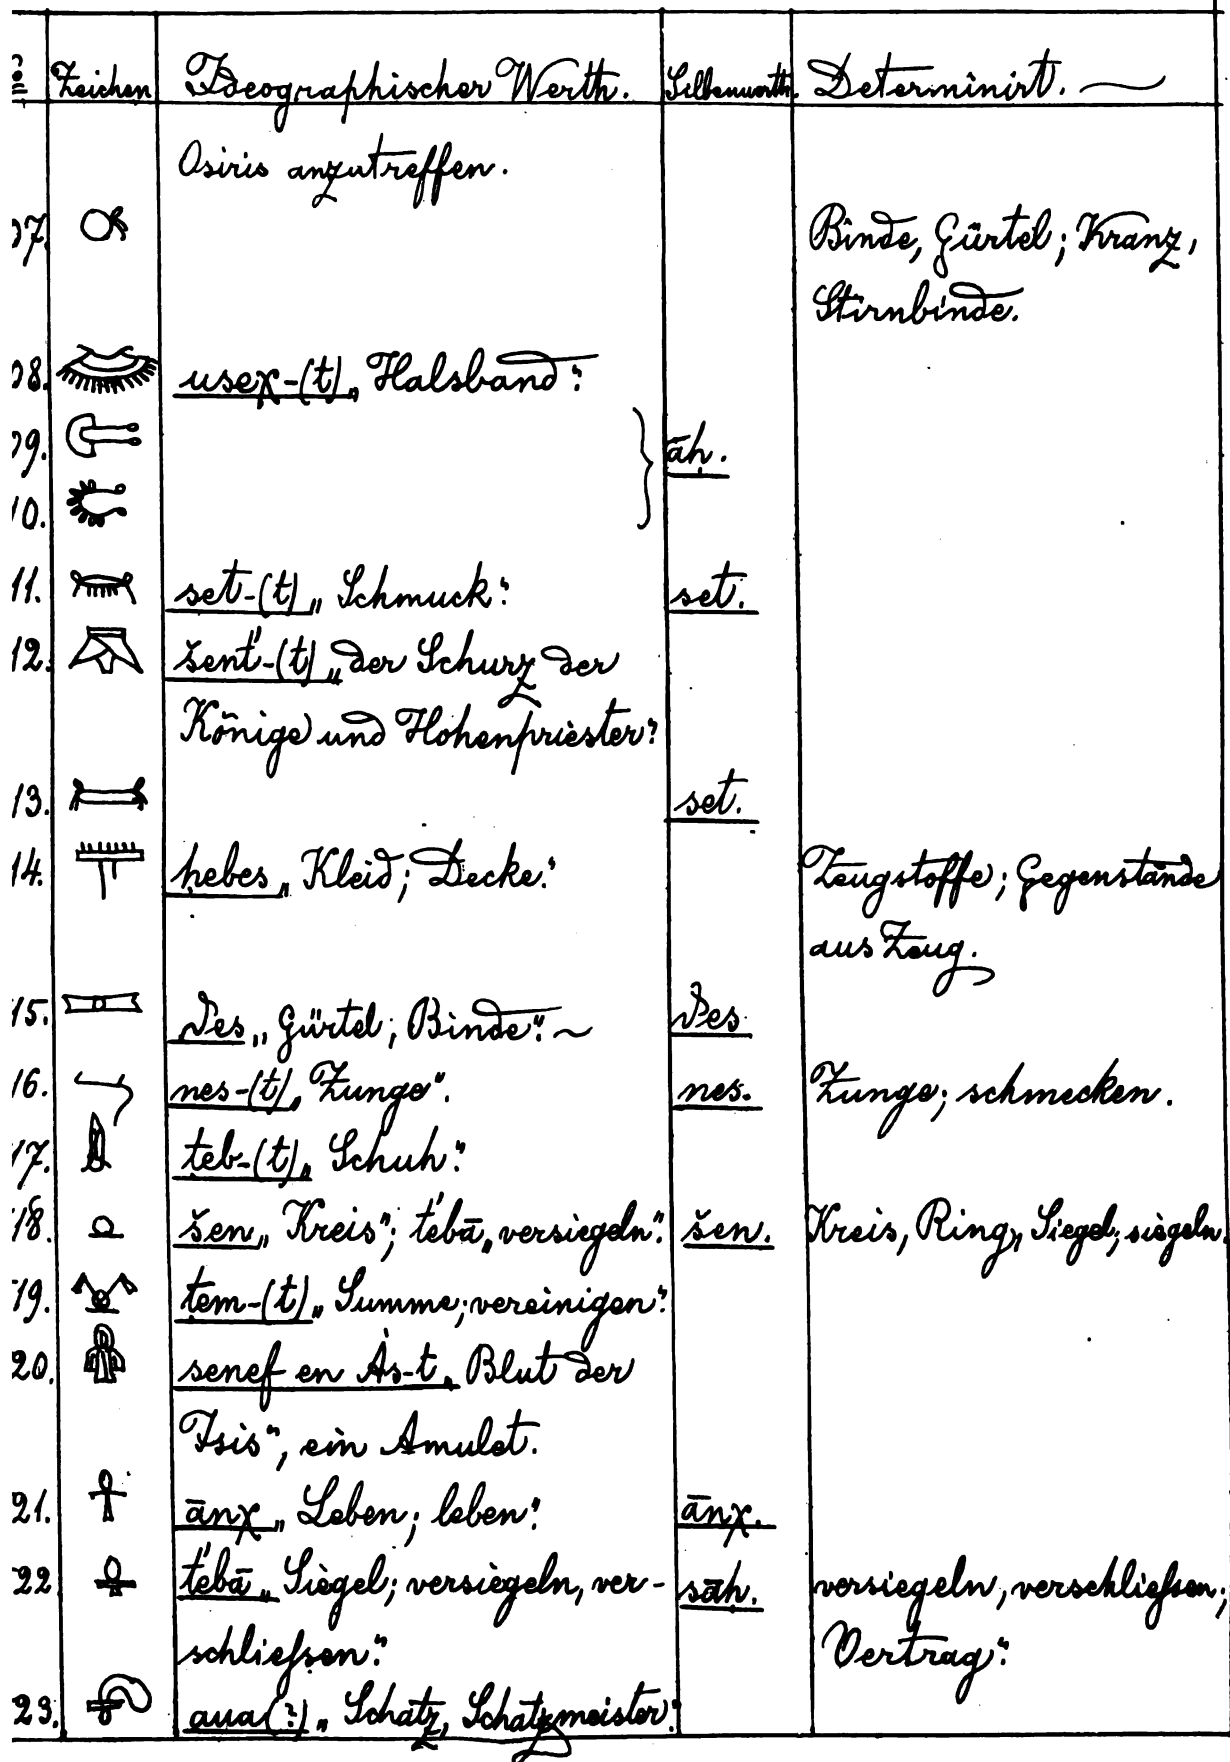 Zeichen Ideographischer Werth. Silbenwerth. Determinirt.
Osiris anzutreffen.
07. Binde, Gürtel; Kranz,
Stirnbinde.
08. useχ-(t) „Halsband“.
09. āḥ.
10.
11. set-(t) „Schmuck“. set.
12. šent'-(t) „der Schurz der
Könige und Hohenpriester“.
13. set.
14. ḥebes „Kleid; Decke.“ Zeugstoffe; Gegenstände
aus Zeug.
15. „Gürtel; Binde“.
16. nes-(t) „Zunge“. nes. Zunge; schmecken.
17. ṭeb-(t) „Schuh“.
18. šen „Kreis“; t'ebā „versiegeln“. šen. Kreis, Ring, Siegel; siegeln.
19. ṭem-(t) „Summe; vereinigen“.
20. senef en Ȧs-t „Blut der
Isis“, ein Amulet.
21. ānχ „Leben; leben“. ānχ.
22. t'ebā „Siegel; versiegeln, ver-
schließen“. sāḥ. versiegeln, verschließen;
Vertrag“.
23. aua(?) „Schatz, Schatzmeister“.